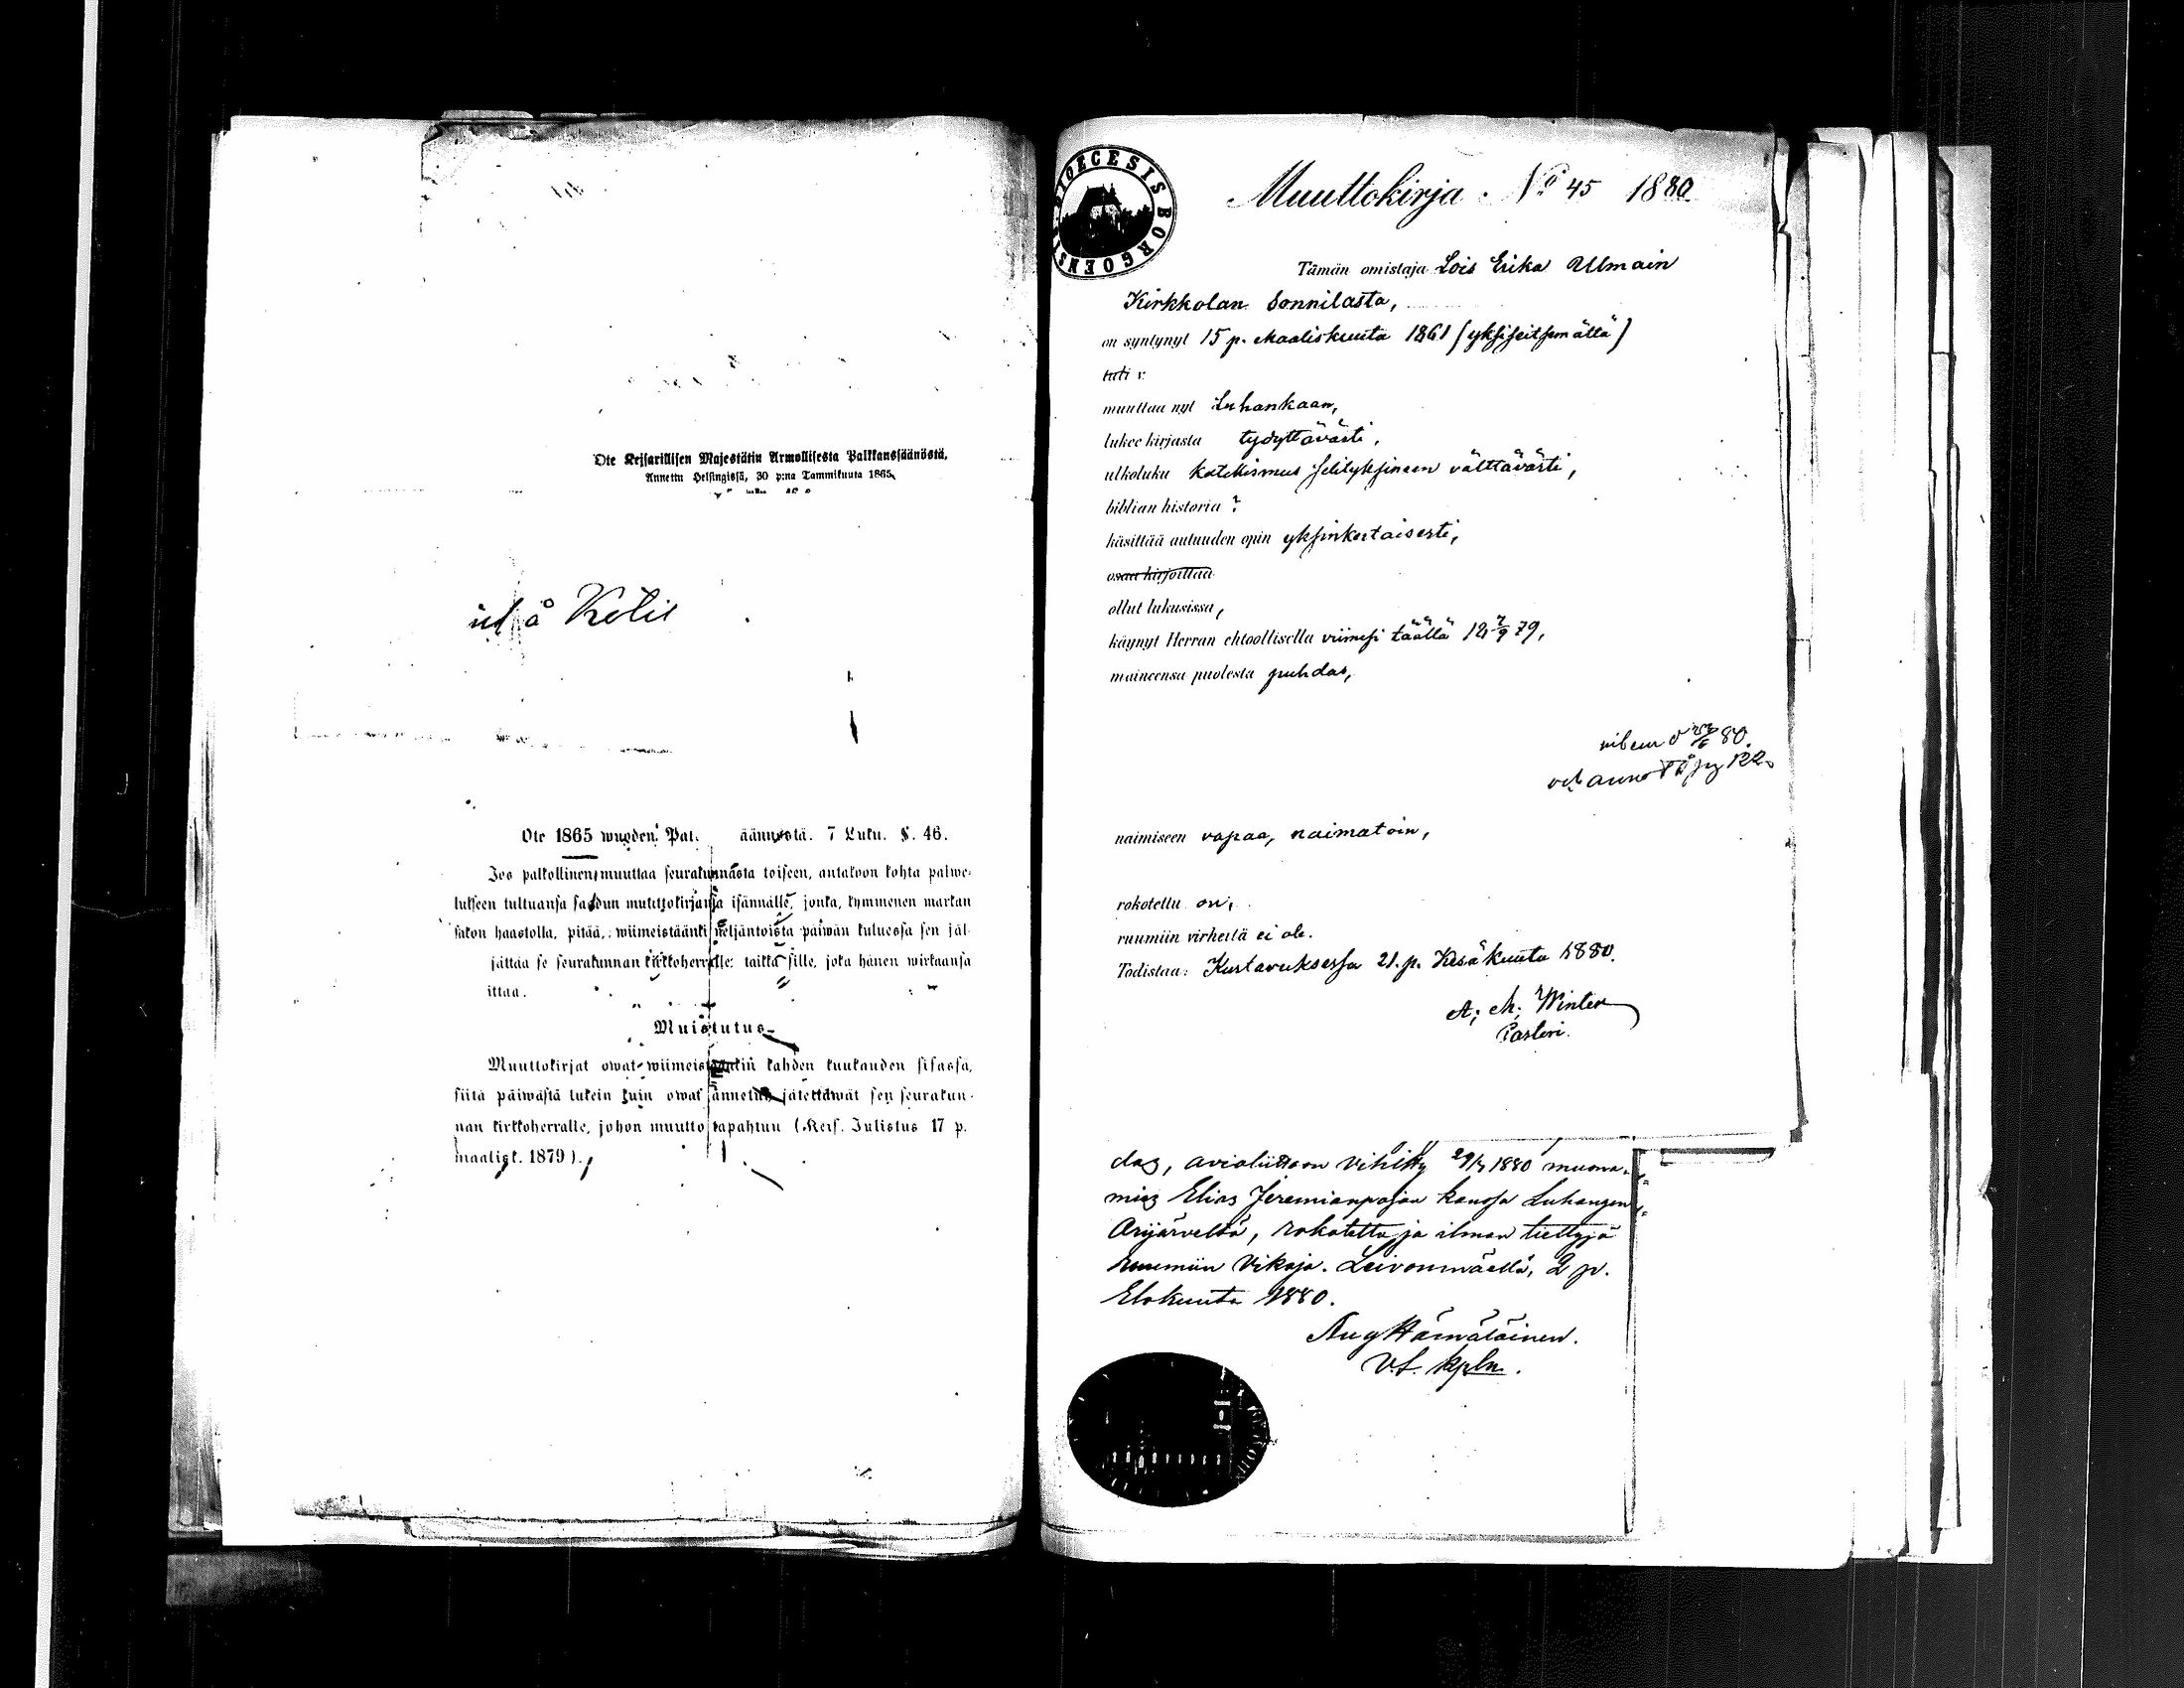 Ote Keisarillisen Majestätin Armollisesta Palkkaussäännöstä,
Annettu Helsingissä, 30 p:nä Tammikuuta 1865.
å
Ote 1865 wuoden Pal. äännöstä. 7 Luku. §. 46.
Jos palkollinen muuttaa seurakunnasta toiseen, antakoon kohta palwe-
lukseen tultuansa saadun muuttokirjansa isännälle, jonka, kymmenen markan
sakon haastolla, pitää, wiimeistäänki neljäntoista päiwän kuluessa sen jäl-
jättää se seurakunnan kirkkoherralle: taikka sille, joka hänen wirkaansa
ittaa.
Muistutus.
Muuttokirjat owat wiimeistäänkin kahden kuukauden sisässä,
siitä päiwästä lukein kuin owat annetut, jätettäwät sen seurakun-
nan kirkkoherralle, johon muutto tapahtuu (Keis. Julistus 17 p.
maalisk. 1879).
DIOECESIS BORGOENSIS
Muuttokirja No 45 1880
Tämän omistaja Lois Erika Ulmain
Kirkkolan Sonnilasta,
on syntynyt 15 p. Maaliskuuta 1861 (yksiseitsemättä)
tuli v.
muuttaa nyt Luhankaan,
lukee kirjasta tydyttävästi,
ulkoluku katekismus selityksineen välttävästi,
biblian historia ?
käsittää autuuden opin yksinkertaisesti,
osaa kirjoittaa
ollut lukusissa,
käynyt Herran ehtoollisella viimesi täällä 79,
maineensa puolesta puhdas,
80.
naimiseen vapaa, naimatoin,
rokotettu on,
ruumiin virheitä ei ole.
Todistaa: Kustavuksessa 21. p. Kesäkuuta 1880.
A. M. Winter
Pastori.
das, avioliittoon vihitty 1880 muona-
mies Elias Jeremianpojan kanssa Luhangan
, rokotettu ja ilman tiettyjä
ruumiin vikoja. Leivonmäellä, 2 p.
Elokuuta 1880.
Aug Hämäläinen.
V.t. kpln.